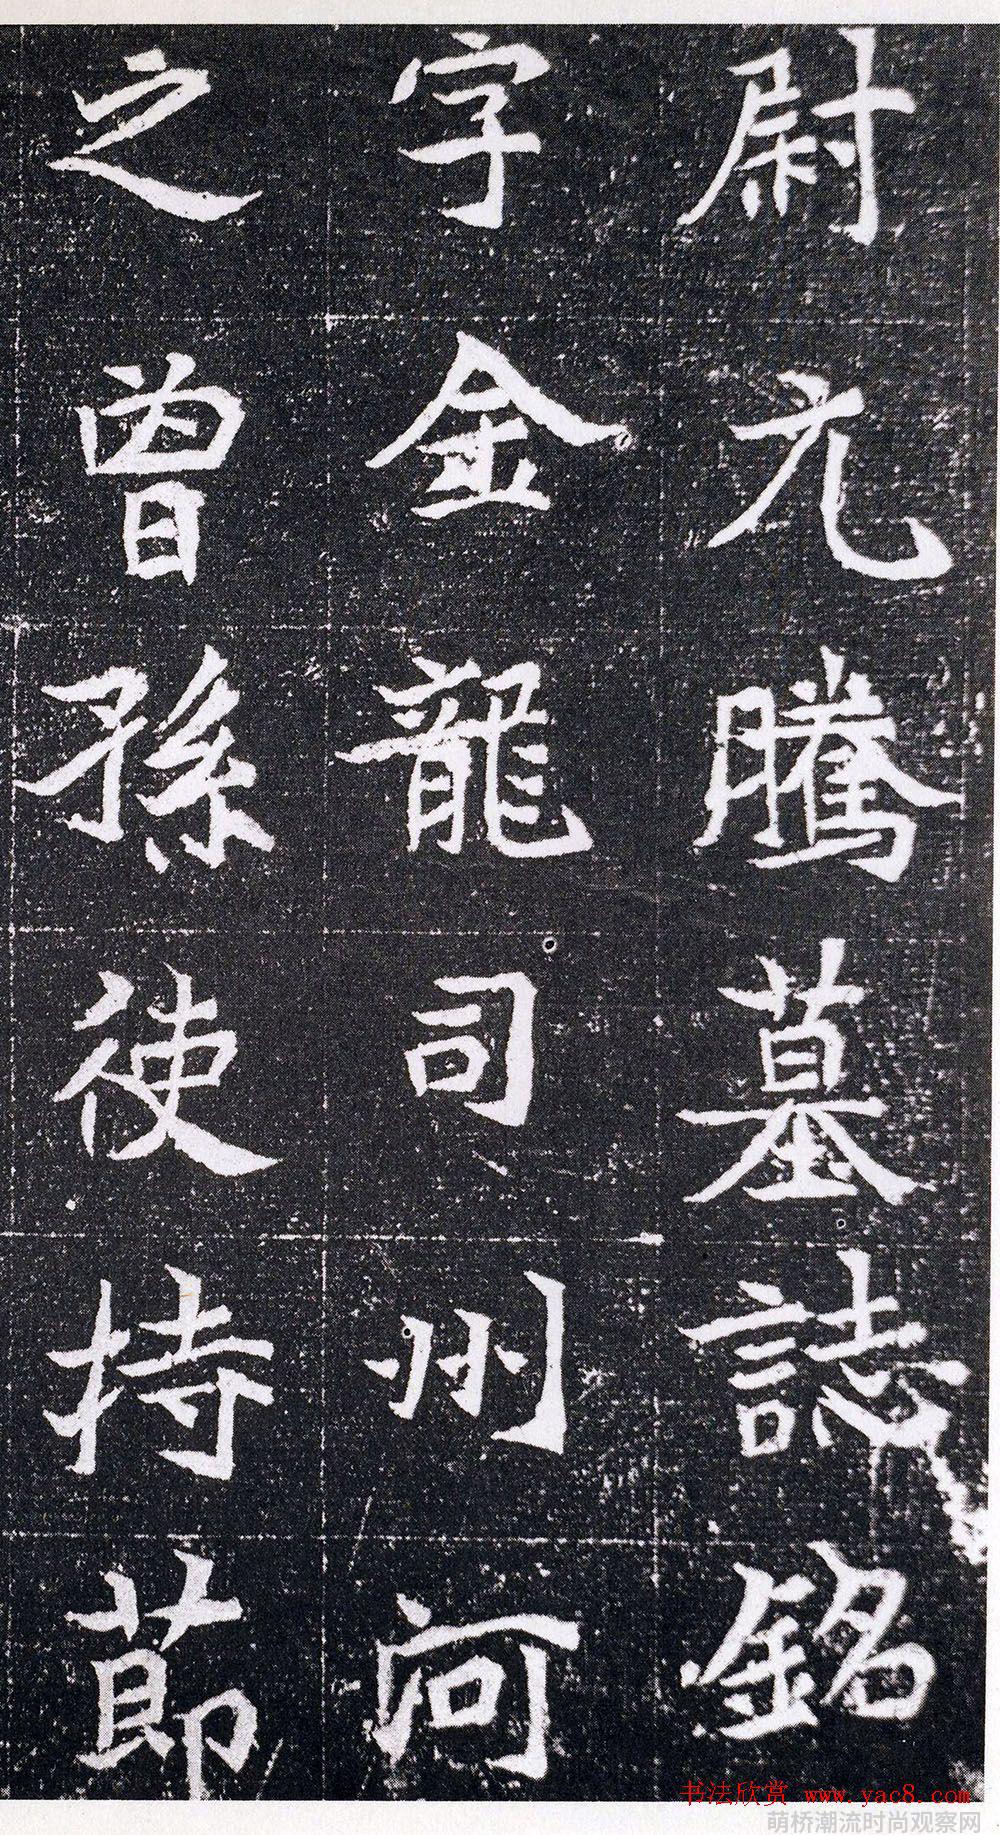 尉元騰墓誌銘
字金龍司州河
之曾孫使持節
书法欣赏 www.yac8.com
萌桥潮流时尚观察网